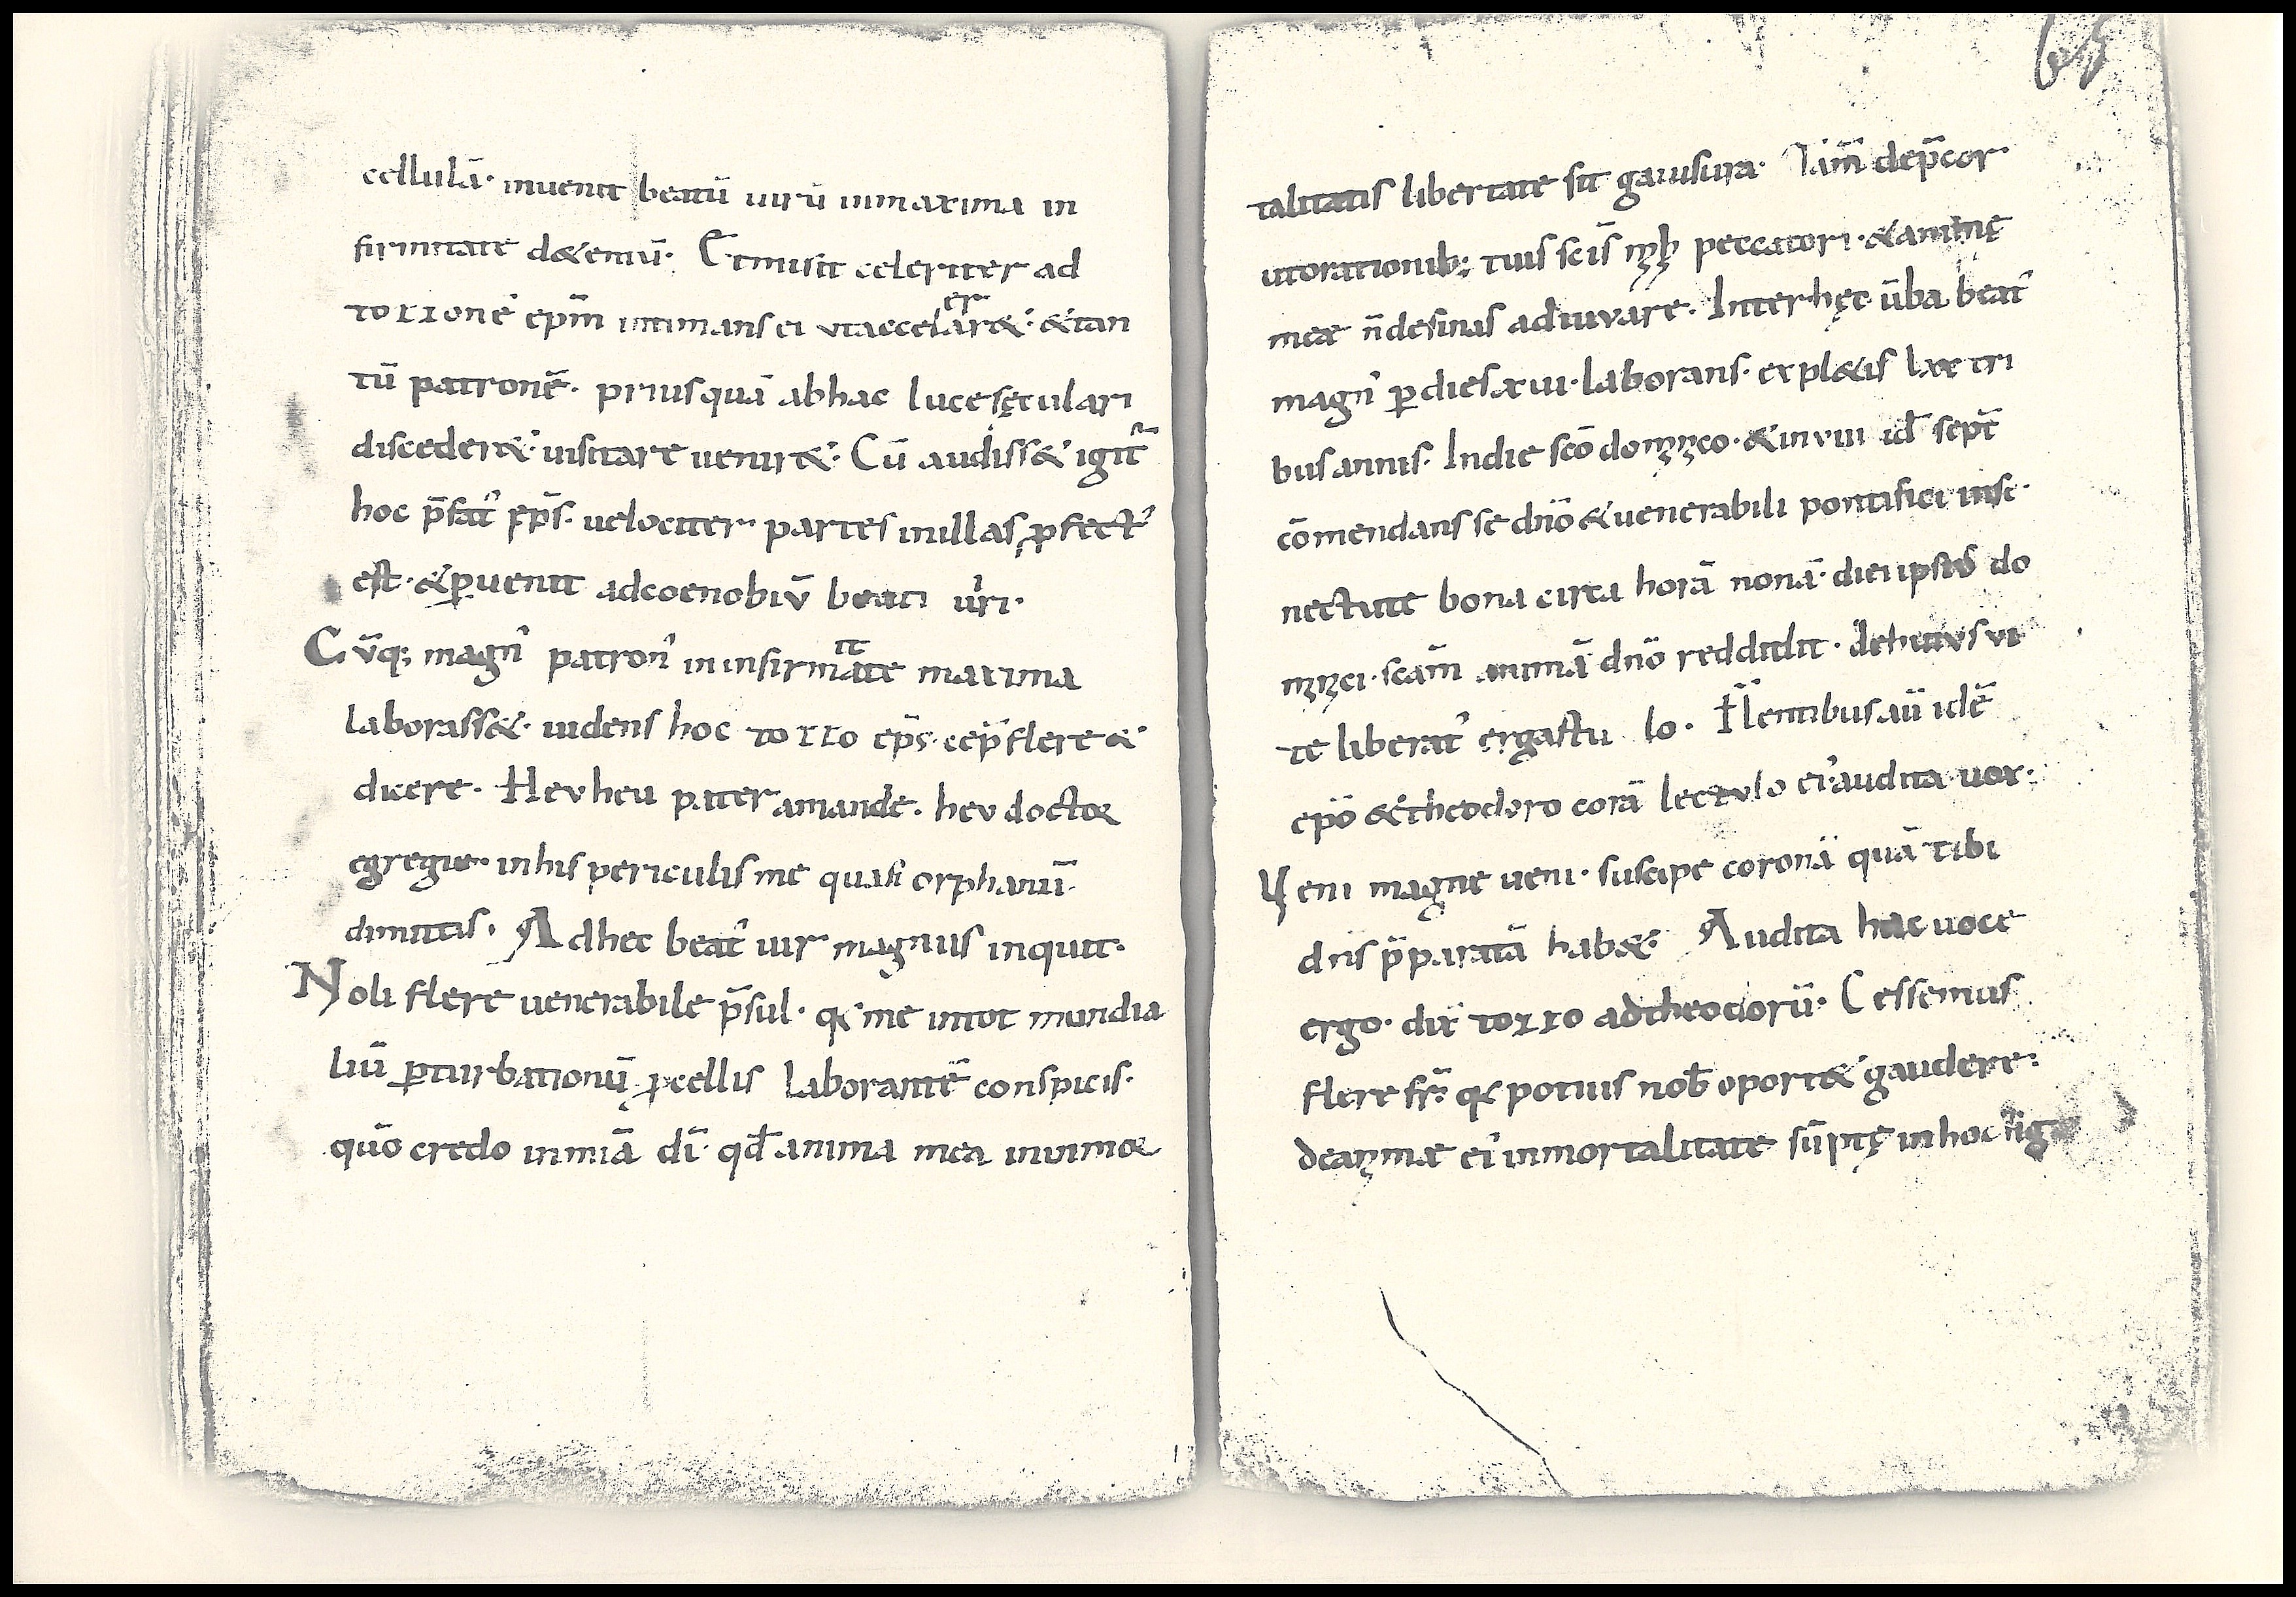 cellulā· inuenit beatū uirū inmaxima in
firmitate d&entū· Etmisit celeriter ad
tozzonē ep̄m intimans ei vtaccelerar&· &tan
tū patronē· priusquā abhac lucesęculari
disceder&· uisitare uenir&· Cū audiss& igit᷑
hoc p̄fat᾽ ep̄s· uelociter partes inillas ꝓfect᾽
est· &ꝑuenit adcoenobiū beati ūri·
Cūq; magn᾽ patron᾽ in infirmitate maxima
laborass&· uidens hoc tozzo ep̄s· cep̄ flere &
dicere· Heuheu pater amande· heu doctor
egregie· inhis periculis me quasi orphanū
dimittis· Adhec beat᾽ uir magnus inquit·
Noli flere uenerabile p̄sul· q&#x27; me intot mundia
liū ꝑturbationū ꝓcellis laborantē conspicis·
qūo credo inmīa dī· qđ anima mea inmor
talitatis libertate sit gauisura· Tam̄ dep̄cor
utorationib; tuis scīs mɧ peccatori· &animę
meæ n̄desinas adiuvare· Interhęc ūba beat᾽
magn᾽ ꝑdies xvii· laborans· expl&is lxx tri
bus annis· Indie scō domnco· &inviii id̄ sept̄
cōmendans se dn̄o &uenerabili pontifici inse
nectute bona circa horā nonā· diei ipsius do
mnci· scām animā dn̄o reddidit· dehuius vi
te liberat᾽ ergastu lo· Flentibus aū idē
ep̄o &theodoro corā lectulo ei᾽ audita uox·
Veni magne ueni· suscipe coronā quā tibi
dn̄s p̄paratā hab&· Audita hac uoce
ergo· dix̄ tozzo adtheodorū· Cessemus
flere fr̄· q&#x27; potius nob̄ oport& gaudere·
deanimæ ei᾽ inmortalitate sūptę inhoc sig